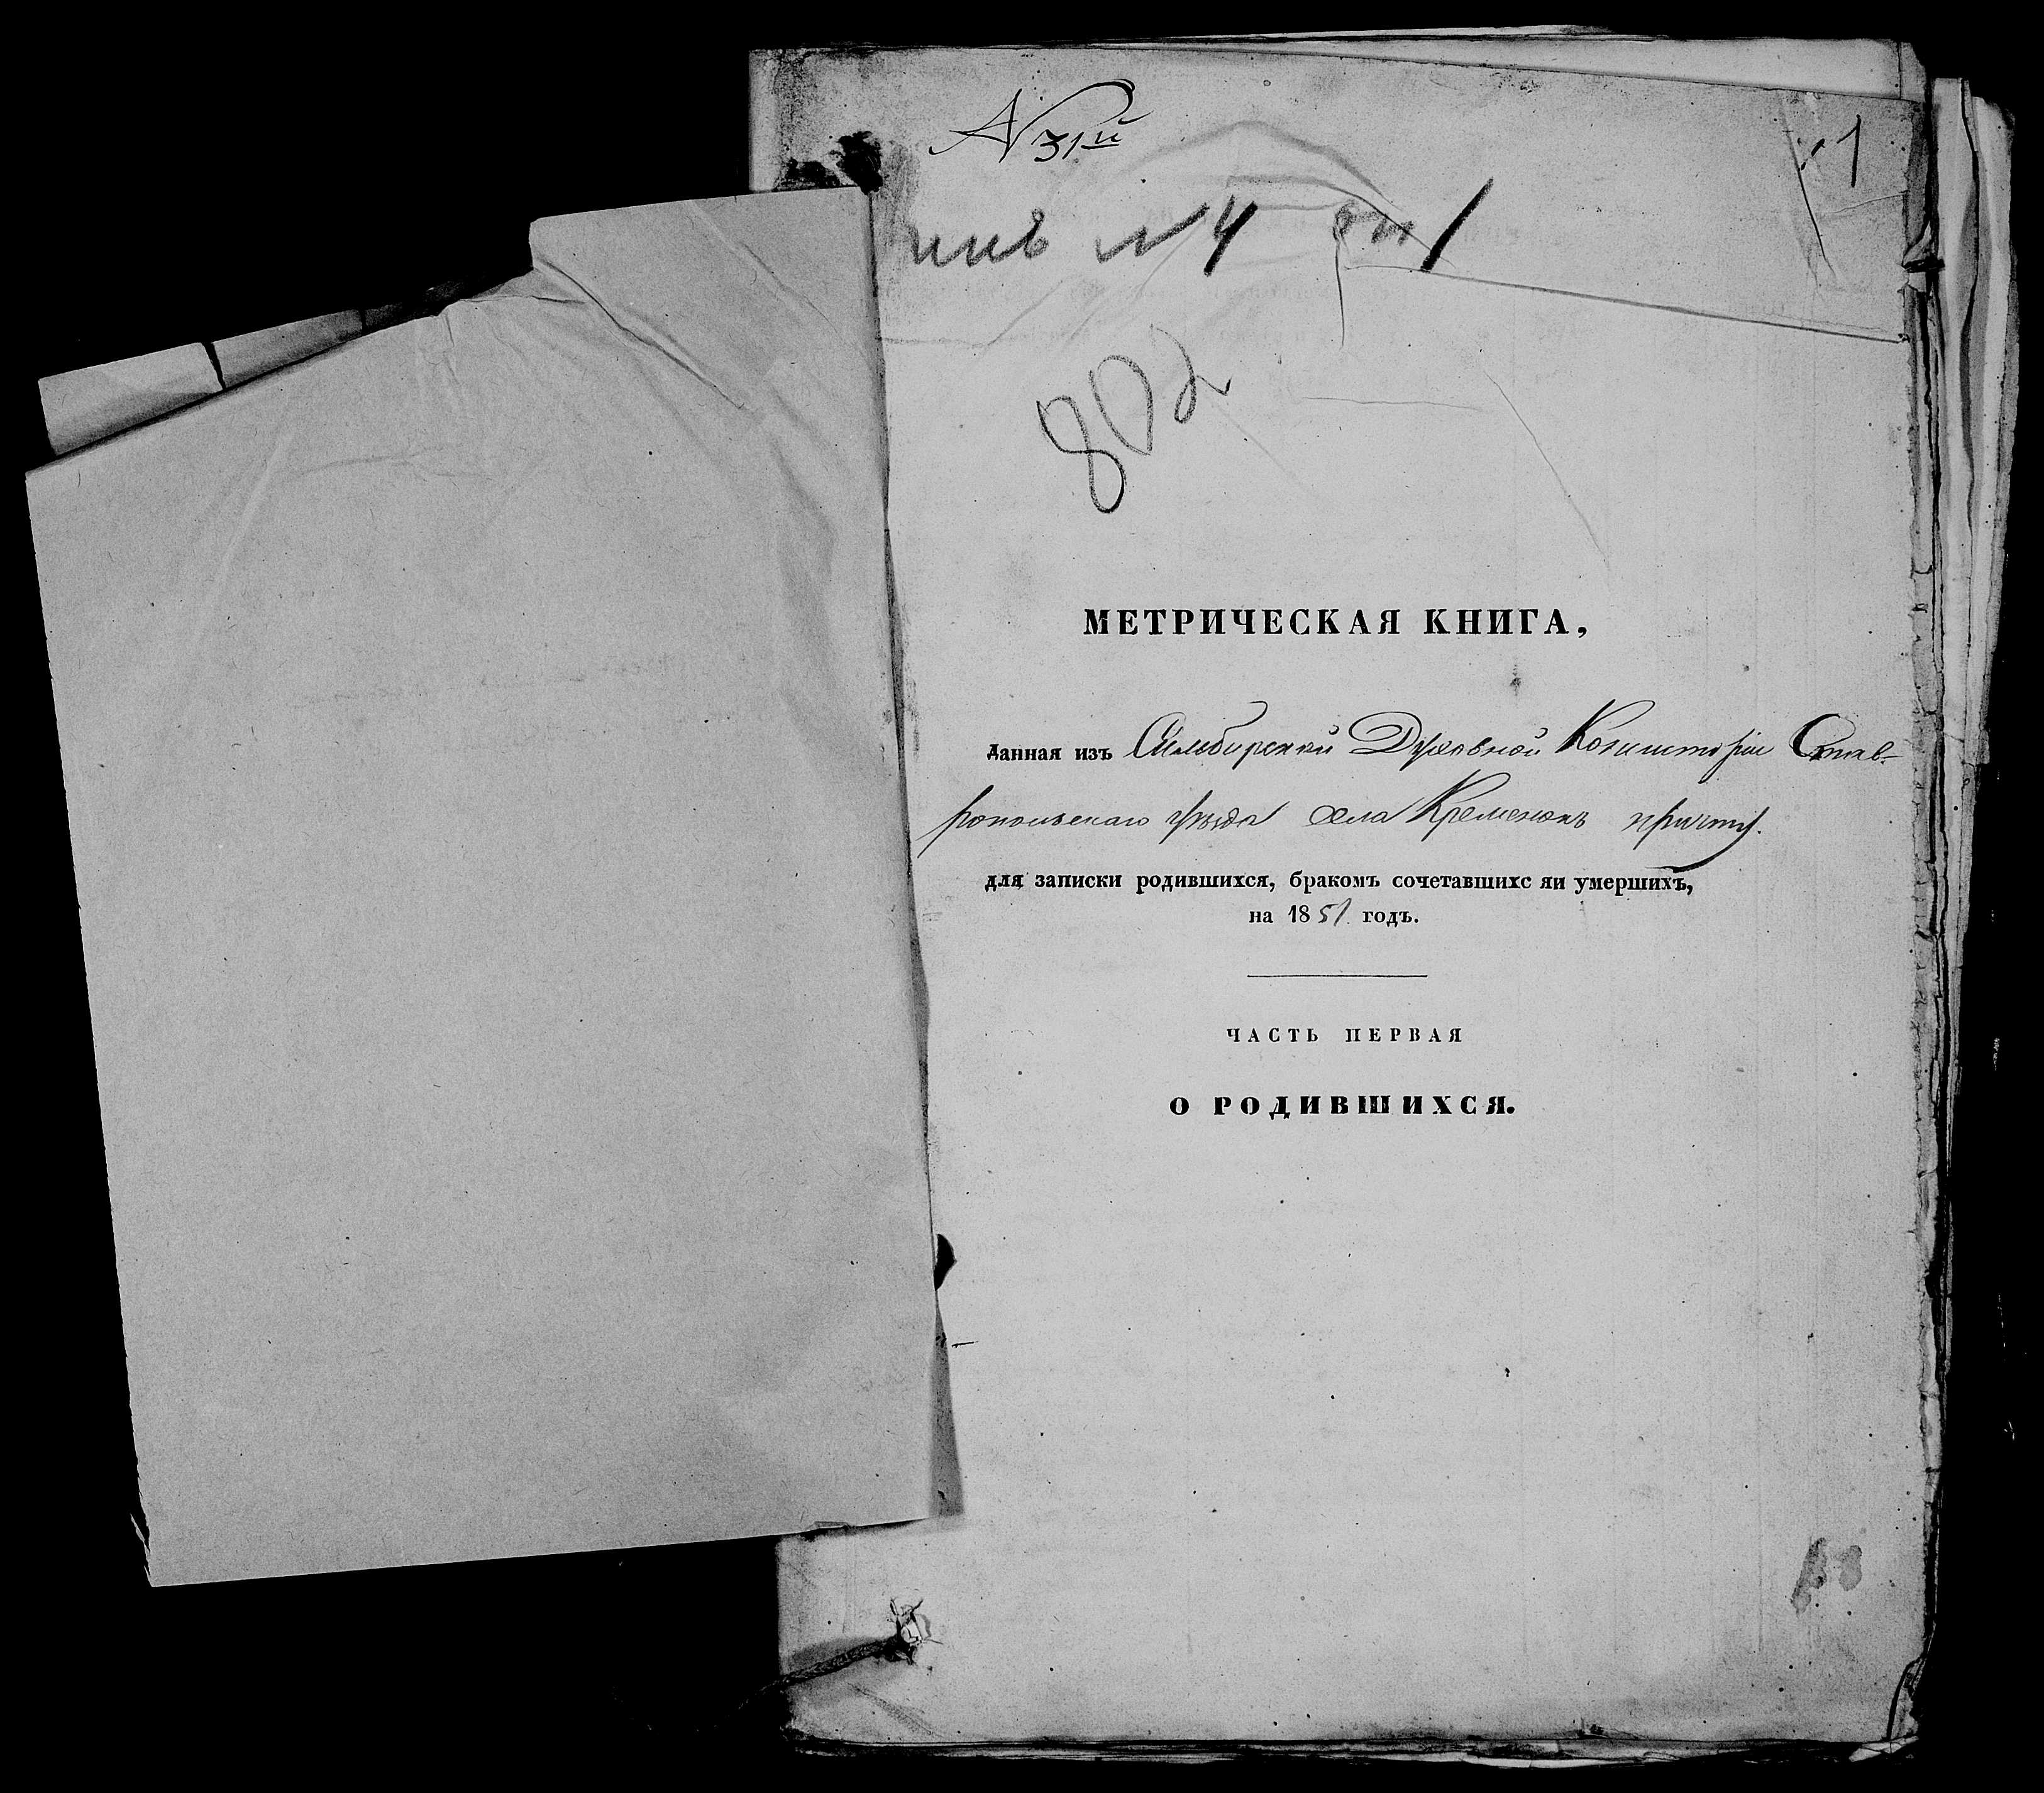 № 31й
1
инв №4 оп 1
802
МЕТРИЧЕСКАЯ КНИГА,
данная изъ Симбирской Духовной Консисторіи Став-
ропольскаго уѣзда села Кременокъ причту.
для записки родившихся, бракомъ сочетавшихс яи умершихъ,
на 1851 годъ.
ЧАСТЬ ПЕРВАЯ
О РОДИВШИХСЯ.